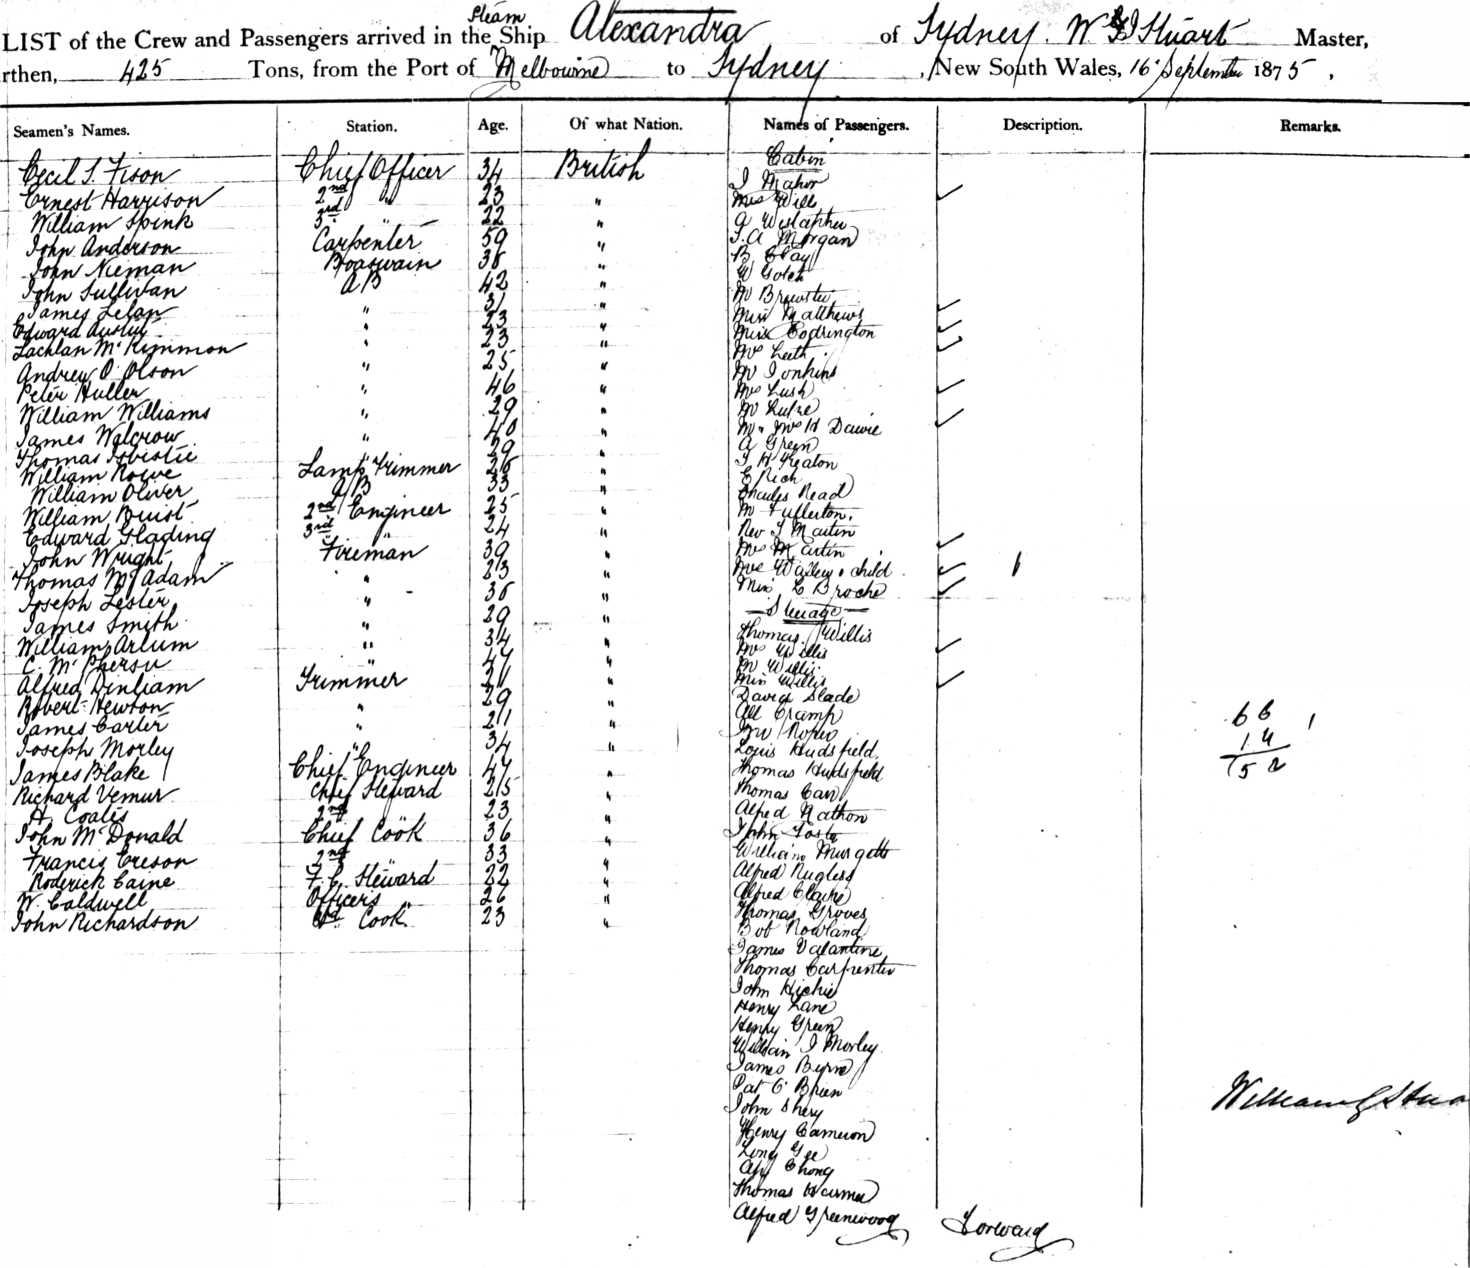 LIST of the Crew and Passengers arrived in the Steam Ship Alexandra of Sydney. W G Stuart Master,
rthen, 425 Tons, from the Port of Melbourne to Sydney, New South Wales, 16 September 1875,
Seamen's Names. Station. Age. Of what Nation. Names of Passengers. Description. Remarks.
Cabin
Cecil S. Fison Chief Officer 34 British J Mahor
Ernest Harrison 2nd " 23 " Mrs Wills
William Spink 3rd " 22 " A
John Anderson Carpenter 59 " T. A Morgan
John Nieman Boatswain 38 " B. Clay
John Sullivan AB 42 " W Gotch
James " 31 " Mr Brewster
Edward " 23 " Miss Matthews
Lachlan McKinnon " 23 " Miss Codrington
Andrew O. Olson " 25 " Mrs Leith
Peter Huller " 46 " Mr Jonkins
William Williams " 29 " Mrs Lush
James Walcrow " 40 " Mr
Thomas " 29 " Mr & Mrs H Davie
William Rowe Lamp Trimmer 26 " A Green
William Oliver AB 33 " J H Keaton
William Buist 2nd Engineer 25 " E Rich
Edward Glading 3rd " 24 " Charles Read
John Wright Fireman 39 " Mr Fullerton.
Thomas McAdam " 23 " Rev J Martin
Joseph Lester " 38 " Mrs Martin
James Smith " 29 " Mrs & child 1
William Arlum " 34 " Miss L Broche
C. McPherson " 47 " Steerage
Alfred Dinham Trimmer 21 " Thomas Willis
Robert Newton " 29 " Mrs Willis
James Carter " 21 " Mr Willis
Joseph Morley " 34 " Miss Willis
James Blake Chief Engineer 47 " David Slade
Richard Vemur Chief Steward 25 " Cramp
H. Coates 2nd " 23 " Roper
John McDonald Chief Cook 36 " Louis Hudsfield
Francis Creson 2nd " 33 " Thomas Hudsfield
Roderick Caine F. C. Steward 22 " Thomas Carr
W. Caldwell Officers " 26 " Alfred Nathon
John Richardson Cook 23 " John Foste
William Murgatts
Alfred Rugless
Alfred Clarke
Thomas Groves
Bob Rowland
James Valantine
Thomas Carpenter
John Hickie
Henry Lane
Henry Green
William J Morley
James Byrne
Pat O'Brien
John Shery
Henry Cameron
Long Gee
Ah Chong
Thomas Warner
Alfred Greenwood Forward
66 1
14
152
William G Stua